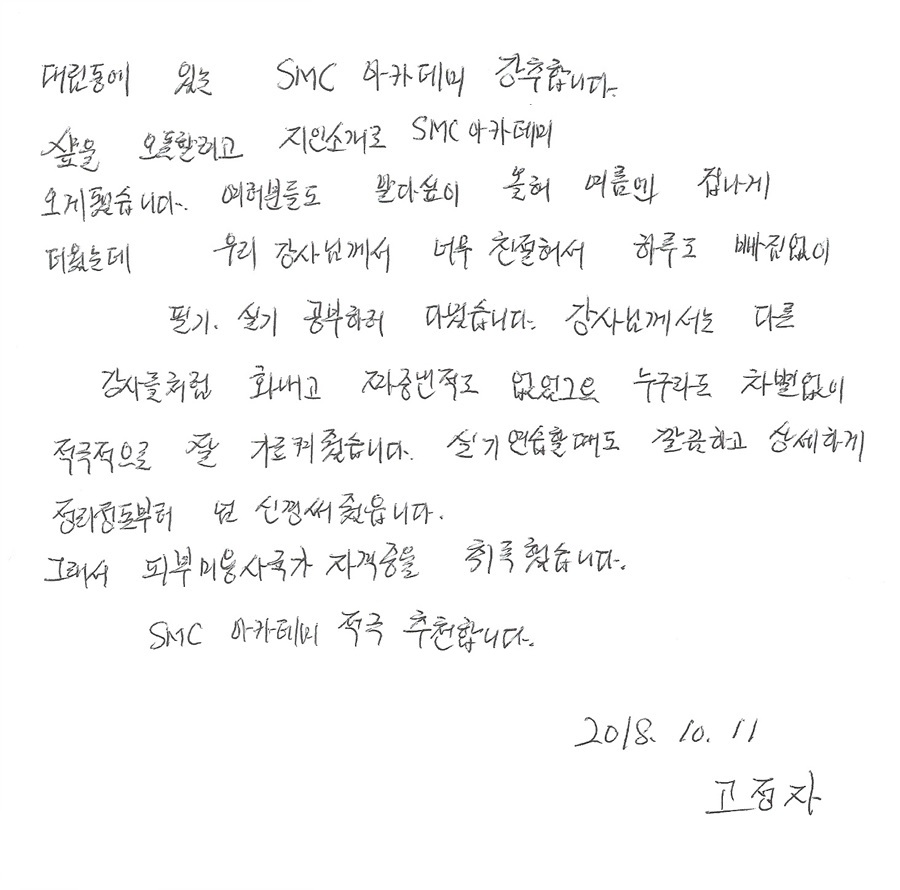 대림동에 있는 SMC 아카데미 강추합니다.
샾을 오픈할려고 지인소개로 SMC아카데미
오게됬습니다. 여러분들도 알다싶이 올해 여름엔 겁나게
더웠는데 우리 강사님께서 너무 친절해서 하루도 빠짐없이
필기. 실기 공부하러 다녔습니다. 강사님께서는 다른
강사들처럼 화내고 짜증번적도 없었그으 누구라도 차별없이
적극적으로 잘 가르켜 줬습니다. 실기연습할때도 깔끔하고 상세하게
정리정돈부터 넘 신경써 줬읍니다.
그래서 피부미용사국가 자격증을 취득 했습니다.
SMC 아카데미 적극 추천합니다.
2018. 10. 11
고정자